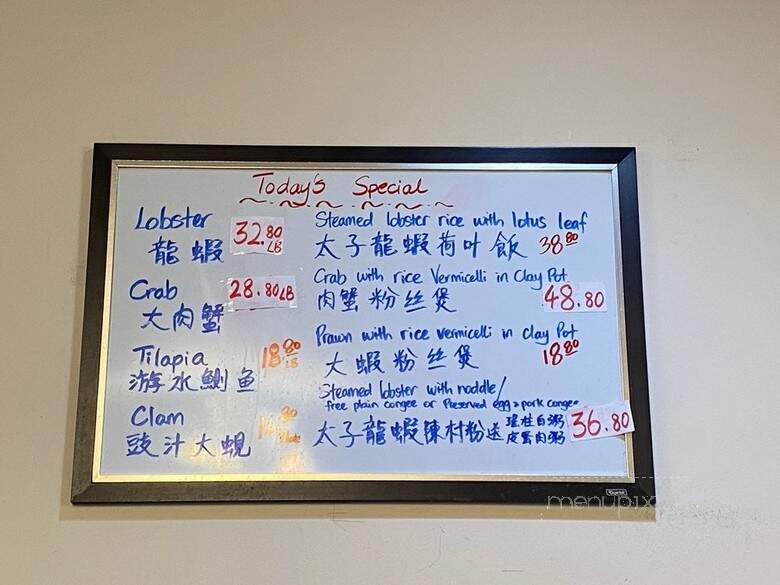 Today's Special
Lobster
龍蝦
32.80 LB
Crab
大肉蟹
28.80 LB
Tilapia
游水鰂鱼
18.80 LB
Clam
豉汁大蜆
Steamed lobster rice with lotus leaf
太子龍蝦荷叶飯 38.80
Crab with rice Vermicelli in Clay Pot
肉蟹粉丝煲 48.80
Prawn with rice vermicelli in clay Pot
大蝦粉丝煲 18.80
Steamed lobster with noddle/
free plain congee or Preserved egg & pork congee
太子龍蝦陳村粉送 瑶柱白粥
皮蛋肉粥
36.80
Quartet
menupix